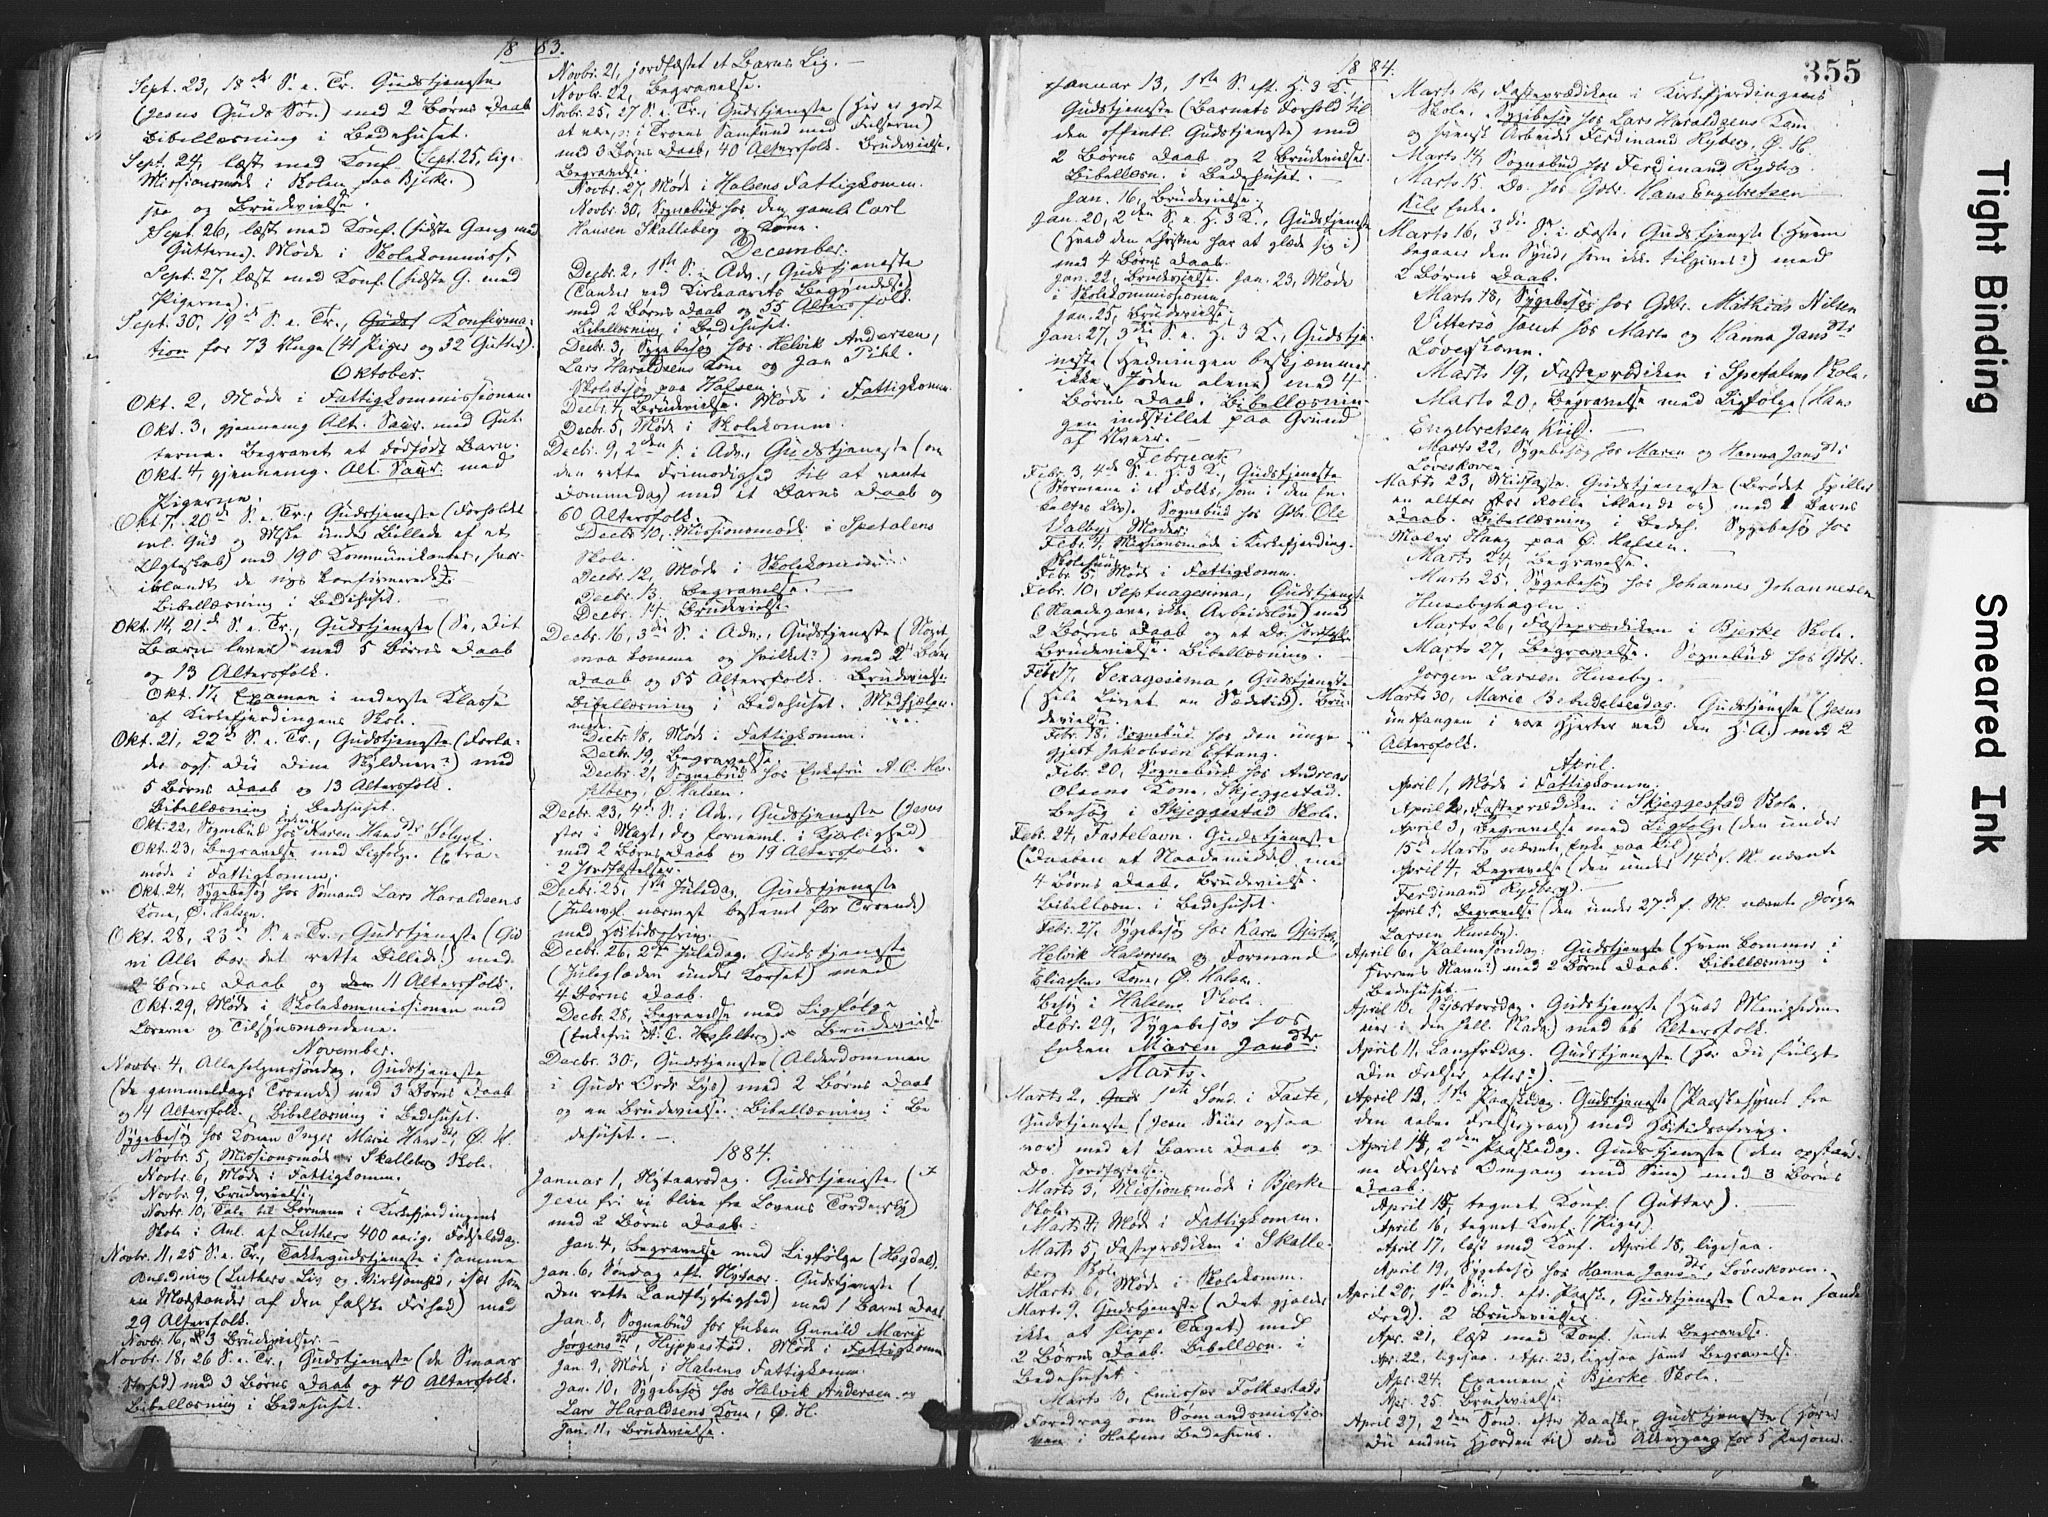 1883.
Sept. 23, 18de S. e. Tr. Gudstjeneste
(Jesus Guds Søn.) med 2 Børns Daab
Bibellæsning i Bedehuset.
Sept. 24, læst med Konf. (Sept. 25, lige-
Missionsmøde i Skolen paa Bjerke.)
saa og Brudevielse.
Sept. 26, læst med Konf. (sidste Gang med
Gutterne). Møde i Skolekommiss.
Sept. 27, læst med Konf. (sidste G. med
Pigerne).
Sept. 30, 19de S. e. Tr., Konfirma-
tion for 73 Unge (41 Piger og 32 Gutter).
Oktober.
Okt. 2, Møde i Fattigkommissionen.
Okt. 3, gjennemg. Alt. Sacr. med Gut-
terne. Begravet et dødfødt Barn.
Okt. 4, gjennemg. Alt. Sacr. med
Pigerne.
Okt. 7, 20de S. e. Tr., Gudstjeneste (Forholdet
ml. Gud og Mske under Billede af et
Ægteskab) med 190 Kommunikanter, her-
iblandt de nys konfirmerede.
Bibellæsning i Bedehuset.
Okt. 14, 21de S. e. Tr., Gudstjeneste (Se, dit
Barn lever) med 5 Børns Daab
og 13 Altersfolk.
Okt. 17, Examen i nederste Klasse
af Kirkefjerdingens Skole.
Okt. 21, 22de S. e. Tr., Gudstjeneste (Forla-
der ogs. du dine Skyldnere?) med
5 Børns Daab og 13 Altersfolk.
Bibellæsning i Bedehuset.
Okt. 22, Sognebud hos Enken Karen Hansdtr Sølyst.
Okt. 23, Begravelse med Ligfølge. Extra-
møde i Fattigkomm.
Okt. 24, Sygebesøg hos Sømand Lars Haraldsens
Kone, Ø. Halsen.
Okt. 28, 23de S. e. Tr., Gudstjeneste (Gid
vi Alle bar det rette Billede!) med
2 Børns Daab og 11 Altersfolk.
Okt. 29, Møde i Skolekommissionen med
Lærerne og Tilsynsmændene.
November.
Novbr. 4, Allehelgenssøndag, Gudstjeneste
(de gammeldags Troende) med 3 Børns Daab
og 14 Altersfolk. Bibellæsning i Bedehuset.
Sygebesøg hos Konen Inger Marie Hansdtr, Ø. H.
Novbr. 5, Missionsmøde i Skalleberg Skole.
Novbr. 6, Møde i Fattigkomm.
Novbr. 9, Brudevielse.
Novbr. 10, Tale til Børnene i Kirkefjerdingens
Skole i Anl. af Luthers 400 aarig. Fødselsdag.
Novbr. 11, 25 S. e. Tr., Takkegudstjeneste i samme
Anledning (Luthers Liv og Virksomhed, især som
en Modstander af den falske Frihed) med
29 Altersfolk.
Novbr. 16, 3 Brudevielser.
Novbr. 18, 26 S. e. Tr., Gudstjeneste (de Smaas
Storhed) med 3 Børns Daab og 40 Altersfolk.
Bibellæsning i Bedehuset.
Novbr. 21, jordfæstet et Barns Lig.
Novbr. 22, Begravelse.
Novbr. 25, 27 S. e. Tr., Gudstjeneste (Her er godt
at være, : i Troens Samfund med Frelseren)
med 3 Børns Daab, 40 Altersfolk. Brudevielse,
Begravelse.
Novbr. 27, Møde i Halsens Fattigkomm.
Novbr. 30, Sognebud hos den gamle Carl
Hansen Skalleberg og Kone.
December.
Decbr. 2, 1ste S. i Adv., Gudstjeneste
(Tanker ved Kirkeaarets Begyndelse)
med 2 Børns Daab og 35 Altersfolk.
Bibellæsning i Bedehuset.
Decbr. 3, Sygebesøg hos Helvik Andersen,
Lars Haraldsens Kone og Jan Pihl.
Skolebesøg paa Halsen.
Decbr. 4, Brudevielse. Møde i Fattigkomm.
Decbr. 5, Møde i Skolekomm.
Decbr. 9, 2den S. i Adv., Gudstjeneste (om
den rette Frimodighed til at vente
Dommedag) med et Barns Daab og
60 Altersfolk.
Decbr. 10, Missionsmøde i Spetalens
Skole.
Decbr. 12, Møde i Skolekomm.
Decbr. 13, Begravelse.
Decbr. 14, Brudevielse.
Decbr. 16, 3die S. i Adv., Gudstjeneste (Noget
maa komme og hvilket?) med 2
Daab og 55 Altersfolk. Brudevielse.
Bibellæsning i Bedehuset.
Decbr. 18, Møde i Fattigkomm.
Decbr. 19, Begravelse.
Decbr. 21, Sognebud hos Enkefru A. C. Hes-
selberg, Ø. Halsen.
Decbr. 23, 4de S. i Adv., Gudstjeneste (Jesus
stor i Magt, dog forneml. i Kjærlighed)
med 2 Børns Daab og 19 Altersfolk.
2 Jordfæstelser.
Decbr. 25, 1ste Juledag, Gudstjeneste
(Julevel. nærmest bestemt for Troende)
med Høitidsofring.
Decbr. 26, 2den Juledag, Gudstjeneste
(Juleglæden under Korset) med
4 Børns Daab.
Decbr. 28, Begravelse med Ligfølge
(Enkefru A. C. Hesselberg). Brudevielse
Decbr. 30, Gudstjeneste (Alderdommen
i Guds Ords Lys) med 2 Børns Daab
og en Brudevielse. Bibellæsning i Be-
dehuset.
1884.
Januar 1, Nytaarsdag. Gudstjeneste (I
Jesu fri vi blive fra Lovens Tordensky)
med 2 Børns Daab.
Jan. 4, Begravelse med Ligfølge (Hegdal).
Jan. 6, Søndag eft. Nytaar. Gudstjeneste (
den rette Landflygtighed) med 1 Barns Daab.
Jan. 8, Sognebud hos Enken Gunild Marie
Jørgensdtr, Hyppestad. Møde i Fattigkomm
Jan. 9, Møde i Halsens Fattigkomm.
Jan. 10, Sygebesøg hos Helvik Andersen og
Lars Haraldsens Kone, Ø. H.
Jan. 11, Brudevielse.
1884.
355
Januar 13, 1ste S. eft. H. 3 K.,
Gudstjeneste (Barnets Forhold til
den offentl. Gudstjeneste) med
2 Børns Daab og 2 Brudevielser.
Bibellæsn. i Bedehuset.
Jan. 16, Brudevielse.
Jan. 20, 2den S. e. H. 3 K., Gudstjeneste
(Hvad den Christne har at glæde sig i)
med 4 Børns Daab.
Jan. 22, Brudevielse. Jan. 23, Møde
i Skolekommissionen.
Jan. 25, Brudevielse.
Jan. 27, 3die S. e. H. 3 K., Gudstje-
neste (Hedningen beskjæmmer
ikke Jøden alene) med 4
Børns Daab. Bibellæsnin-
gen indstillet paa Grund
af Uveir.
Februar.
Febr. 3, 4de S. e. H. 3 K., Gudstjeneste
(Stormene i et Folks, som i den En-
keltes Liv). Sognebud hos Gdbr. Ole
Valbys Moder.
Febr. 4, Missionsmøde i Kirkefjerding.
Skolehus.
Febr. 5, Møde i Fattigkomm.
Febr. 10, Septuagesima, Gudstjeneste
(Naadegave, ikke Arbeidsløn) med
2 Børns Daab og et Do. Jordfæst.
Brudevielse. Bibellæsning.
Febr. 17, Sexagesima, Gudstjeneste
(Hele Livet en Sædetid). Bru-
devielse.
Febr. 18, Sognebud hos den unge
Gjert Jakobsen Eftang.
Febr. 20, Sognebud hos Andreas
Olsens Kone, Skjeggestad.
Besøg i Skjeggestad Skole.
Febr. 24, Fastelavn. Gudstjeneste
(Daaben et Naademiddel) med
4 Børns Daab, Brudevielse.
Bibellæsn. i Bedehuset.
Febr. 27, Sygebesøg hos Karen
Helvik Halvorsen og Formand
Eliasens Kone, Ø. Halsen.
Besøg i Halsens Skole.
Febr. 29, Sygebesøg hos
Enken Maren Jansdtr.
Marts.
Marts 2, 1ste Sønd. i Faste,
Gudstjeneste (Jesu Seier ogsaa
vor) med et Barns Daab og
Do. Jordfæstelse.
Marts 3, Missionsmøde i Bjerke
Skole.
Marts 4, Møde i Fattigkomm.
Marts 5, Fasteprædiken i Skalle-
berg Skole.
Marts 6, Møde i Skolekomm.
Marts 9, Gudstjeneste (Det gjælder
ikke at slippe Taget) med
2 Børns Daab. Bibellæsn. i
Bedehuset.
Marts 10, Emissær Folkestads
Foredrag om Sømandsmissio-
nen i Halsens Bedehus.
Marts 12, Fasteprædiken i Kirkefjerdingens
Skole. Sygebesøg hos Lars Haraldsens Kone
og svensk Arbeider Ferdinand Rydberg, Ø. H.
Marts 14, Sognebud hos Ferdinand Rydberg
Marts 15, Do. hos Gdbr. Hans Engebretsen
Kiels Enke.
Marts 16, 3die S. i Faste, Gudstjeneste (Hvem
begaaer den Synd, som ikke tilgives?) med
2 Børns Daab.
Marts 18, Sygebesøg hos Gdbr. Mathias Nilsen
Vittersø samt hos Maren og Hanna Jansdtr
Løveskoven.
Marts 19, Fasteprædiken i Spetalens Skole.
Marts 20, Begravelse med Ligfølge (Hans
Engebretsen Kiel).
Marts 22, Sygebesøg hos Maren og Hanna Jansdtr
Løveskoven.
Marts 23, Midfaste. Gudstjeneste (Brødet spiller
en altfor stor Rolle iblandt os) med 1 Barns
Daab. Bibellæsning i Bedeh. Sygebesøg hos
Maler Haug paa Ø. Halsen.
Marts 24, Begravelse.
Marts 25, Sygebesøg hos Johannes Johannesen
Husebyhagen.
Marts 26, Fasteprædiken i Bjerke Skole.
Marts 27, Begravelse. Sognebud hos Gdbr.
Jørgen Larsen Huseby.
Marts 30, Mariæ Bebudelsesdag. Gudstjeneste (Jesus
undfangen i vore Hjerter ved den H. A.) med 2
Altersfolk.
April.
April 1, Møde i Fattigkomm.
April 2, Fasteprædiken i Skjeggestad Skole.
April 3, Begravelse med Ligfølge (den under
15de Marts nævnte Enke paa Kiel).
April 4, Begravelse (den under 14de f. M. nævnte
Ferdinand Rydberg).
April 5, Begravelse (den under 27de f. M. nævnte Jørgen
Larsen Huseby).
April 6, Palmesøndag. Gudstjeneste (Hvem kommer i
Herrens Navn?) med 2 Børns Daab. Bibellæsning i
Bedehuset.
April 10, Skjærtorsdag. Gudstjeneste (Hvad Menigheden
eier i den hell. Nadv.) med 66 Altersfolk.
April 11, Langfredag. Gudstjeneste (Har Du fulgt
Din Frelser efter?).
April 13, 1ste Paaskedag. Gudstjeneste (Paaskehymne fra
den aabne Frelsergrav) med Høitidsofring.
April 14, 2den Paaskedag. Gudstjeneste (den opstand-
ne Frelsers Omgang med Sine) med 3 Børns
Daab.
April 15, tegnet Konf. (Gutter).
April 16, tegnet Konf. (Piger)
April 17, læst med Konf. April 18, ligesaa.
April 19, Sygebesøg hos Hanna Jansdtr, Løveskoven.
April 20, 1ste Sønd. eft. Paaske, Gudstjeneste (Den sande
Fred). 2 Brudevielser.
Apr. 21, læst med Konf. samt Begravelse.
Apr. 22, ligesaa. Apr. 23, ligesaa samt Begravelse.
Apr. 24. Examen i Bjerke Skole.
Apr. 25. Brudevielse.
April 27, 2den Sønd. efter Paaske, Gudstjeneste (Hører
Du endnu Hjorden til) med Altergang for 5 Person.
Tight Binding
Smeared Ink